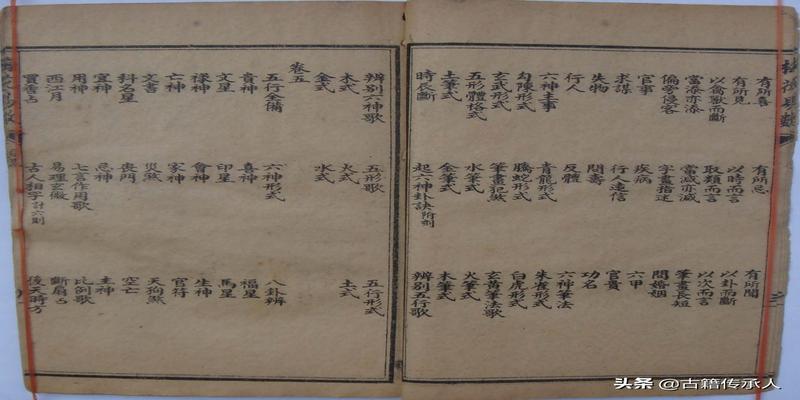 有所喜 有所忌 有所聞
有所見 以時而言 以卦而斷
以禽獸而斷 取類而言 以次而言
當添亦添 當減亦減 筆畫長短
偏旁侵客 字畫指迷 問婚姻
官事 疾病 六甲
求謀 行人遠信 官貴
失物 問壽 功名
行人 反體 六神筆法
六神主事 青龍形式 朱雀形式
勾陳形式 騰蛇形式 白虎形式
玄武形式 筆畫犯煞 玄黃筆法歌
五形體格式 水筆式 火筆式
土筆式 金筆式 木筆式
時辰斷 起六神卦訣 辨別五行歌
辨別六神歌 五形歌 五行形式
木式 火式 土式
金式 水式
卷五
五行全備 六神形式 八卦辨
貴神 喜神 福星
文星 印星 馬星
祿神 會神 生神
亡神 家神 官符
文書 災煞 天狗煞
科名星 喪門 空亡
宜神 忌神 主神
用神 七言作用歌 比例歌
西江月 易理玄微 斷扇占
買賣占 古人相字計六則 後天時方
头条 @古籍传承人